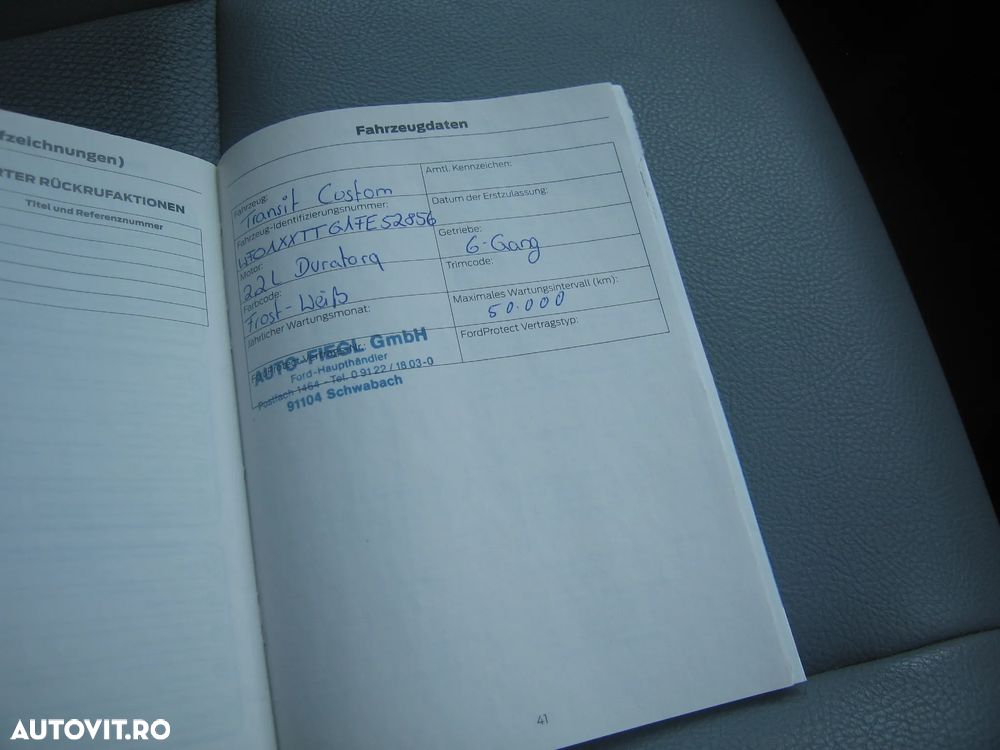 fzeichnungen)
RTER RÜCKRUFAKTIONEN
Titel und Referenznummer
Fahrzeugdaten
Fahrzeug:
Transit Custom
Amtl. Kennzeichen:
Fahrzeug-Identifizierungsnummer:
WF01XXTTG1FE52856
Datum der Erstzulassung:
Motor:
2.2L Duratorq
Getriebe:
6-Gang
Farbcode:
Frost-Weiß
Trimcode:
Jährlicher Wartungsmonat:
Maximales Wartungsintervall (km):
50.000
FordProtect Vertragstyp:
AUTO-FIEGL GmbH
Ford-Haupthändler
Postfach 1464 - Tel. 0 91 22 / 18 03-0
91104 Schwabach
41
AUTOVIT.RO